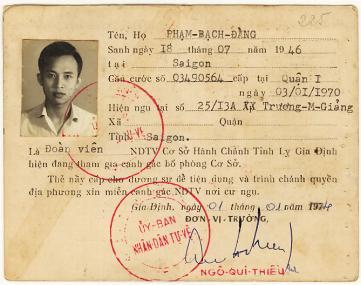 225
Tên, Họ PHẠM-BẠCH-ĐẰNG
Sanh ngày 18 tháng 07 năm 1946
tại Saigon
Căn cước số 03490564 cấp tại Quận I
ngày 03/01/1970
Hiện ngụ tại số 25/13A Trương-M-Giảng
Xã Quận
Tỉnh Saigon.
Là Đoàn viên NDTV Cơ Sở Hành Chánh Tỉnh Lỵ Gia Định
hiện đang tham gia canh gác bố phòng Cơ Sở.
Thẻ này cấp cho đương sự để tiện dụng và trình chánh quyền
địa phương xin miễn canh gác NDTV nơi cư ngụ.
Gia Định, ngày 01 tháng 01 năm 1974
ĐƠN-VỊ-TRƯỞNG,
ỦY-BAN
NHÂN DÂN TỰ-VỆ
NGÔ-QUÍ-THIỀU